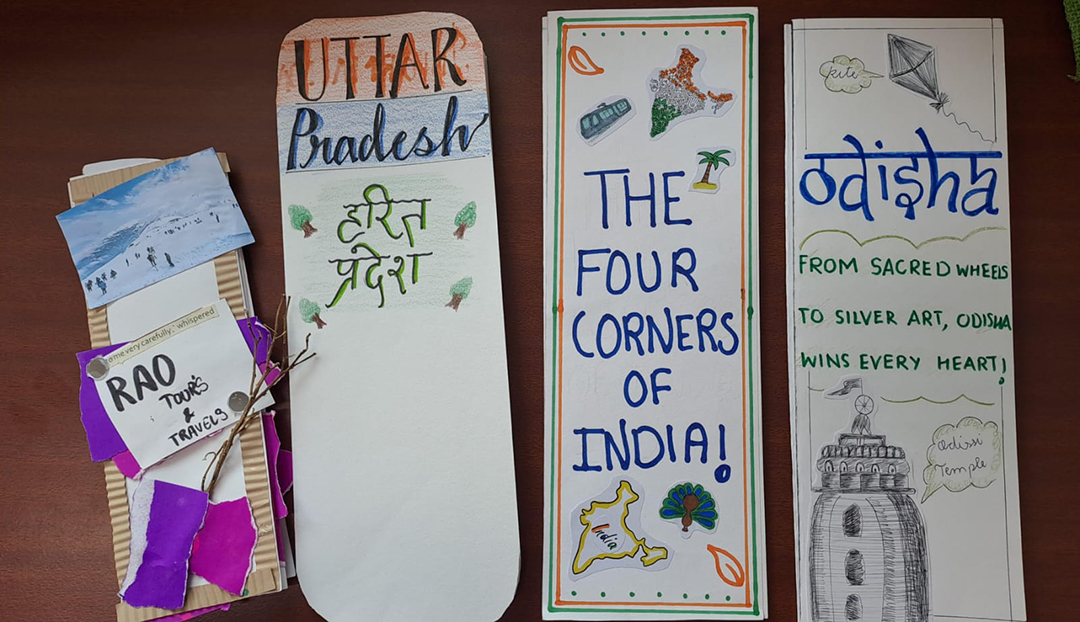 omevery carefully. whispered
RAO
TOUR'S
&
TRAVELS
UTTAR
Pradesh
हरित
प्रदेश
THE
FOUR
CORNERS
OF
INDIA!
India
kite
odisha
FROM SACRED WHEELS
TO SILVER ART, ODISHA
WINS EVERY HEART!
Odissi
Temple